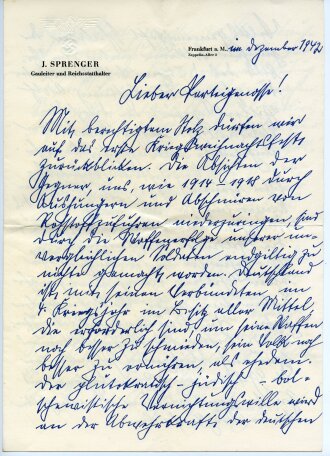 J. SPRENGER
Gauleiter und Reichsstatthalter
Frankfurt a. M., im Dezember 1942
Zeppelin-Allee
Lieber Parteigenosse!
Mit berechtigtem Stolz dürfen wir
auf das erste Kriegsweihnachtsfest
zurückblicken. Die Absichten der
Gegner, uns, wie 1914-1918 durch
Aushungern und Abschnüren von
Rohstoffzufuhren niederzuringen, sind
durch die Waffenerfolge unserer un-
vergleichlichen Soldaten endgiltig zu
nichte gemacht worden. Deutschland
ist, mit seinen Verbündeten, im
4. Kriegsjahr im Besitz aller Mittel,
die erforderlich sind, um seine Waffen
noch besser zu schmieden, sein Volk noch
besser zu ernähren, als ehedem.
Der plutokratisch-jüdisch-bol-
schewistische Vernichtungswille wird
an der Abwehrkraft der deutschen